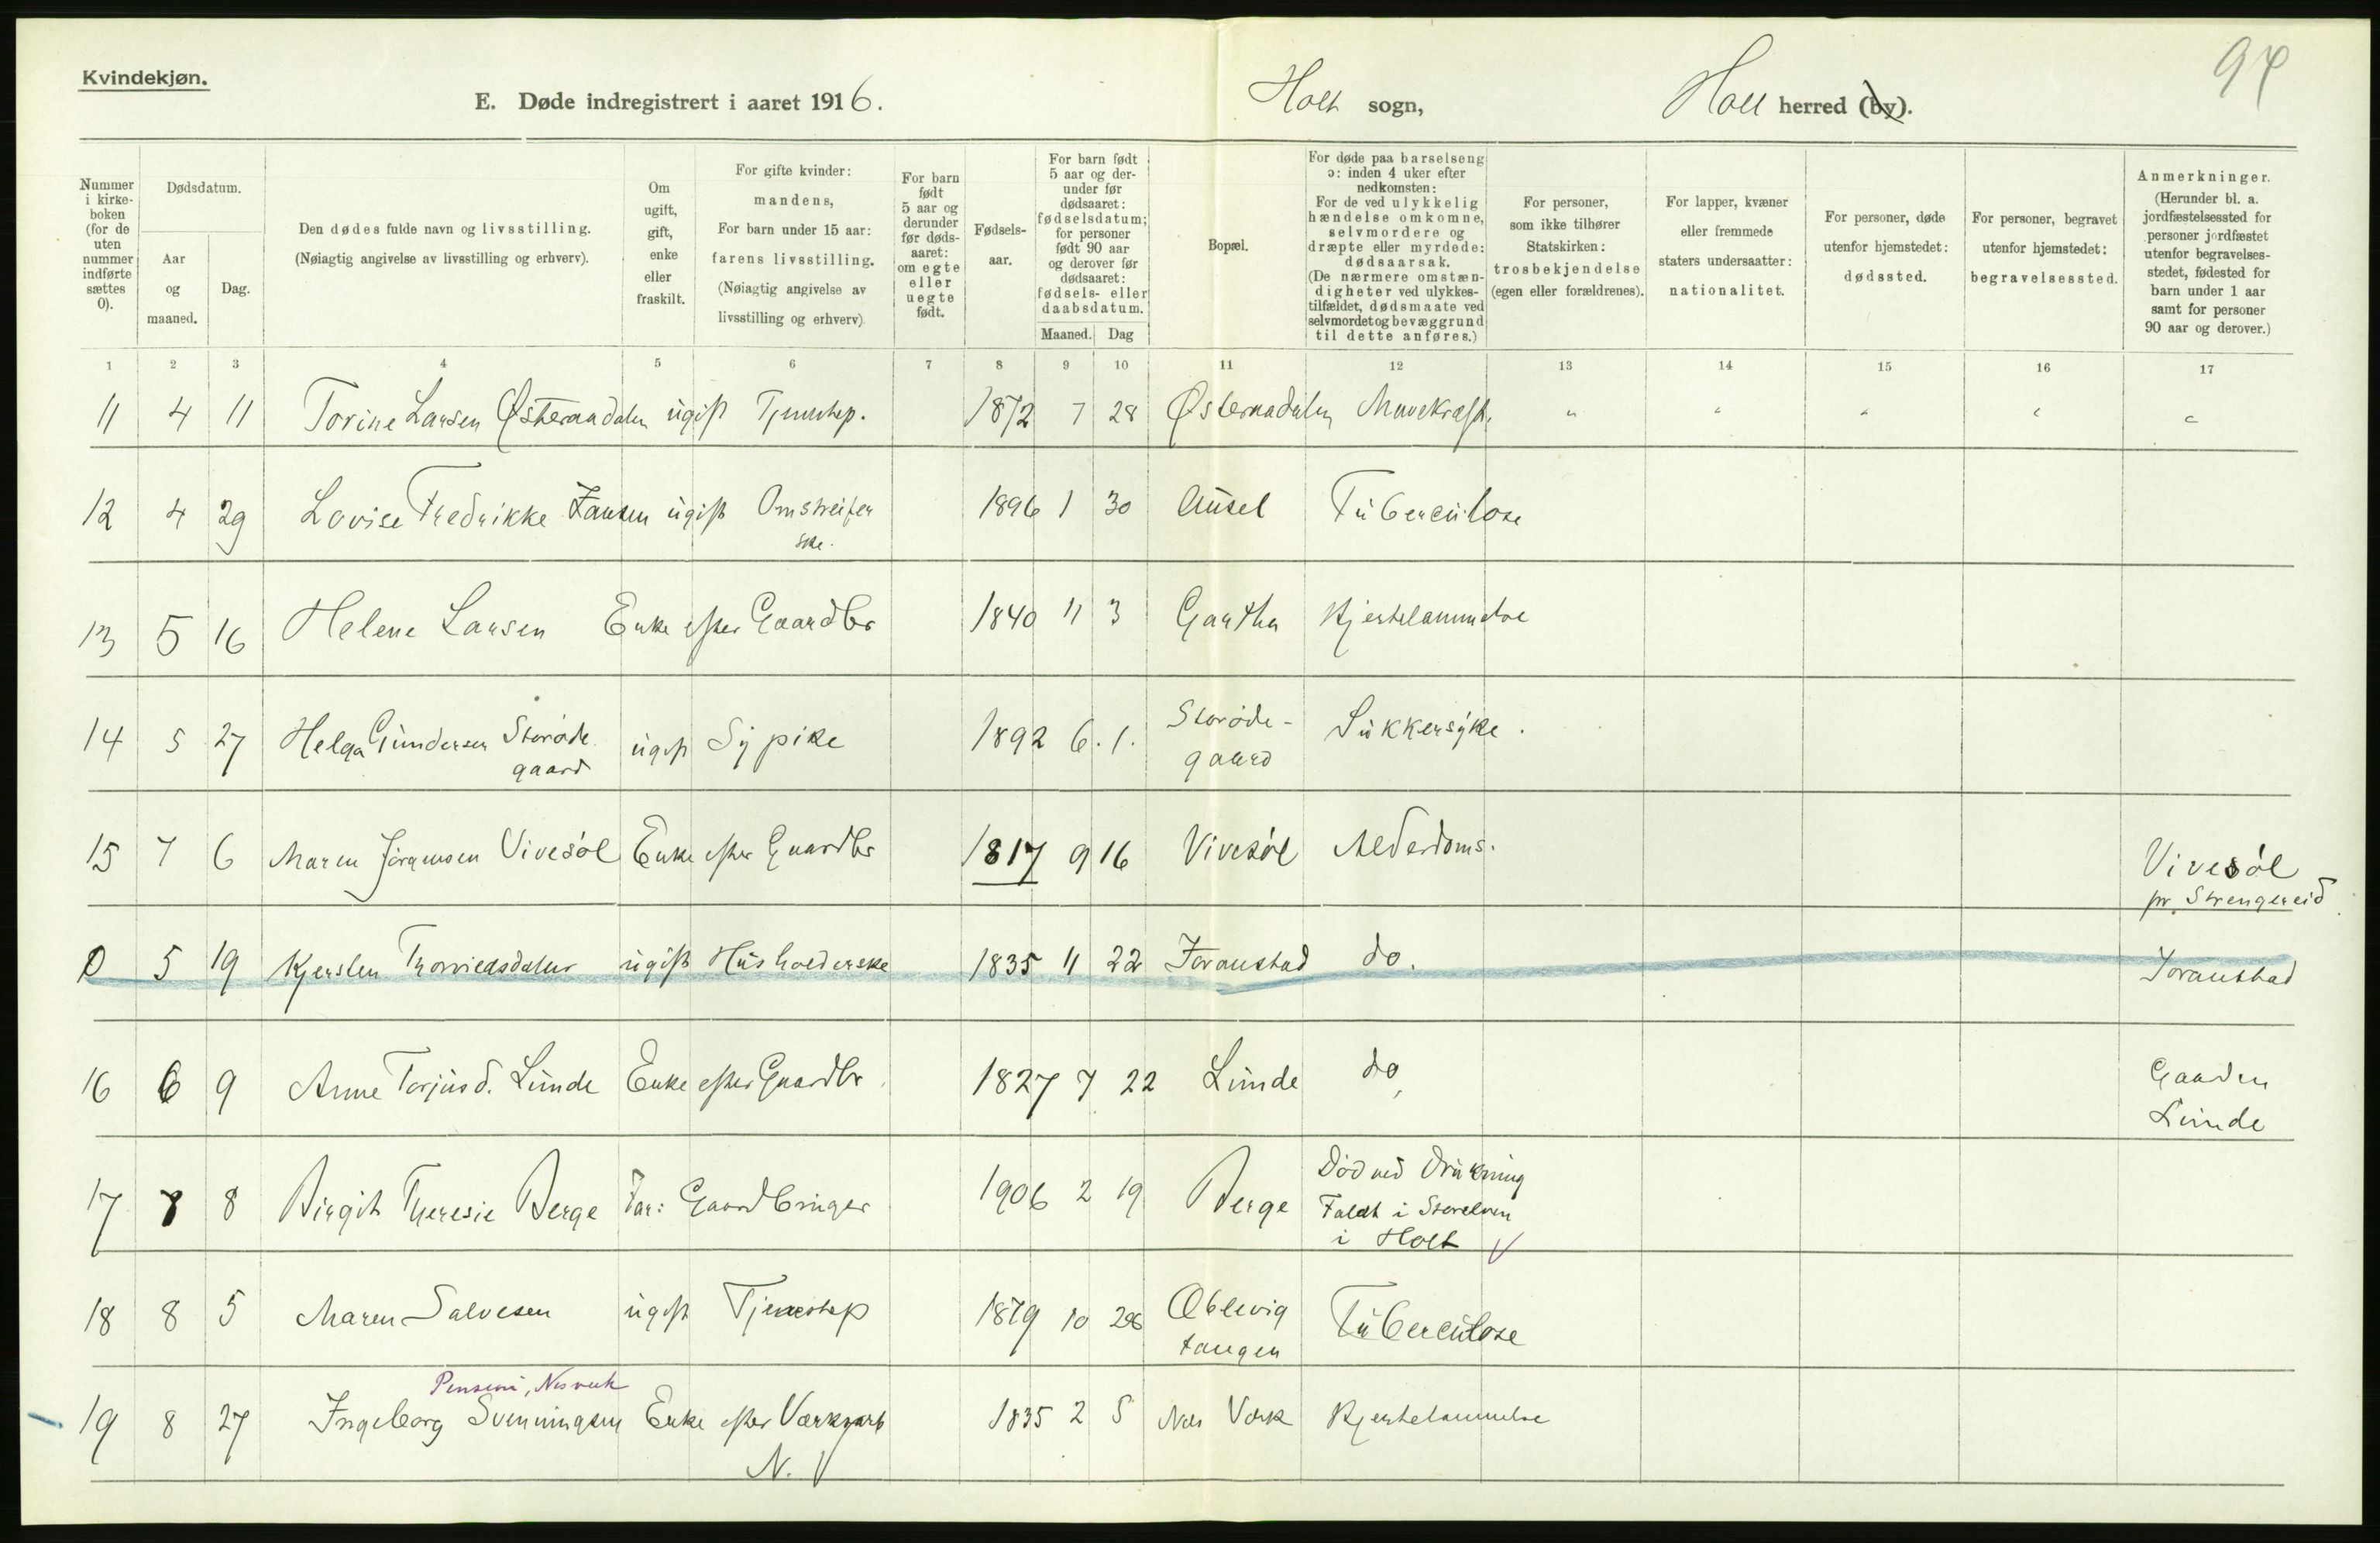 Kvindekjøn.
E. Døde indregistrert i aaret 1916.
Holt sogn,
Holt herred (by).
94
Nummer i kirke-boken (for de uten nummer indførte sættes 0).
Dødsdatum.
Aar og maaned.
Dag.
Den dødes fulde navn og livsstilling.
(Nøiagtig angivelse av livsstilling og erhverv).
Om ugift, gift, enke eller fraskilt.
For gifte kvinder: mandens,
For barn under 15 aar: farens livsstilling.
(Nøiagtig angivelse av livsstilling og erhverv)
For barn født 5 aar og derunder før døds-aaret: om egte eller uegte født.
Fødsels-aar.
For barn født 5 aar og der-under før dødsaaret: fødselsdatum; for personer født 90 aar og derover før dødsaaret: fødsels- eller daabsdatum.
Maaned. Dag
Bopæl.
For døde paa barselseng ɔ: inden 4 uker efter nedkomsten:
For de ved ulykkelig hændelse omkomne, selvmordere og dræpte eller myrdede: dødsaarsak.
(De nærmere omstæn-digheter ved ulykkes-tilfældet, dødsmaate ved selvmordet og bevæggrund til dette anføres.)
For personer, som ikke tilhører Statskirken: trosbekjendelse (egen eller forældrenes).
For lapper, kvæner eller fremmede staters undersaatter: nationalitet.
For personer, døde utenfor hjemstedet: dødssted.
For personer, begravet utenfor hjemstedet: begravelsessted.
Anmerkninger.
(Herunder bl. a. jordfæstelsessted for personer jordfæstet utenfor begravelses-stedet, fødested for barn under 1 aar samt for personer 90 aar og derover.)
1 2 3 4 5 6 7 8 9 10 11 12 13 14 15 16 17
11 4 11 Torine Larsen Østeraadalen ugift Tjenestep. 1872 7 28 Østeraadalen Mavekræft. " " " " "
12 4 29 Lovise Fredrikke Jansen ugift Omstreifer 1896 1 30 Ausel Tuberculose
ske.
13 5 16 Helene Larsen Enke efter Gaardbr 1840 11 3 Gartha Hjertelammelse
14 5 27 Helga Gundersen Storøde ugift Sypike 1892 6. 1. Storøde- Sukkersyke.
gaard gaard
15 7 6 Maren Jørgensen Vivesøl Enke efter Gaardbr 1817 9 16 Vivesøl Alderdoms. Vivesøl
pr. Strengereid
0 5 19 Kjersten Thorviedsdatter ugift Husholderske 1835 11 22 Joranstad do. Joranstad
16 6 9 Anne Torjusd. Lunde Enke efter Gaardbr. 1827 7 22 Lunde do, Gaarden
Lunde
17 7 8 Birgit Theresie Berge Far: Gaardbruger 1906 2 19 Berge Død ved Drukning
Faldt i Storelven
i Holt V
18 8 5 Maren Salvesen ugift Tjenestep 1879 10 26 Oblevig Tuberculose
tangen
19 8 27 Ingeborg Svenningsen Enke efter Værksarb 1835 2 5 Næs Værk Hjertelammelse
N. V